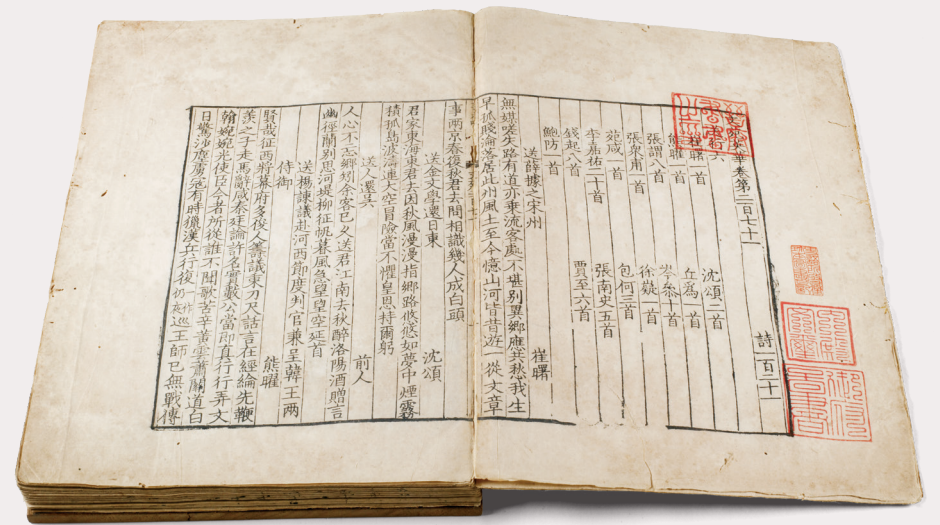 文苑英華卷第二百七十一 詩一百二十
六
崔曙一首 沈頌二首
熊曜一首 丘為一首
張謂一首 岑參一首
張衆甫一首 徐嶷一首
苑咸一首 包何三首
李嘉祐二十首 張南史五首
錢起八首 賈至六首
鮑防一首
送薛據之宋州 崔曙
無媒嗟失路有道亦乘流客處不堪別異鄉應共愁我生
早孤賤淪落居此州風土至今憶山河皆昔遊一從文章
事兩京春復秋君去問相識幾人成白頭
送金文學還日東 沈頌
君家東海東君去因秋風漫漫指鄉路悠悠如夢中煙霧
積孤島波濤連大空冒險當不懼皇恩持爾躬
送人還吳 前人
人心不忘鄉矧余客已久送君江南去秋醉洛陽酒贈言
幽徑蘭別思河堤柳征帆暮風急望望空延首
送楊諫議赴河西節度判官兼呈韓王兩
侍御 熊曜
賢哉征西將幕府多俊人籌議東刀尺話言在經綸先鞭
羨之子走馬辭咸秦庭論許名實數公當即真行行弄文
翰婉婉光使臣今者所從誰不聞歌苦辛黃雲蕭關道白
日驚沙塵虜寇有時獵漢兵行復巡王師已無戰傳